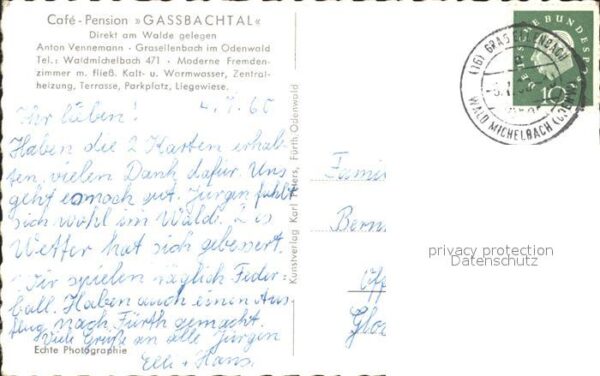 Café - Pension »GASSBACHTAL«
Direkt am Walde gelegen
Anton Vennemann · Grasellenbach im Odenwald
Tel.: Waldmichelbach 471 · Moderne Fremden-
zimmer m. fließ. Kalt- u. Warmwasser, Zentral-
heizung, Terrasse, Parkplatz, Liegewiese.
Ihr lieben! 4.7.60
Haben die 2 Karten erhal-
ten, vielen Dank dafür. Uns
geht es noch gut. Jürgen fühlt
sich wohl im Wald.
Wetter hat sich gebessert.
Wir spielen täglich Feder-
ball. Haben auch einen Aus-
flug nach Fürth gemacht.
Viele Grüße an alle Jürgen
Elli + Hans.
Echte Photographie
Kunstverlag Karl Peters, Fürth/Odenwald
Fami
Bern
Glo
DEUTSCHE BUNDESPOST
10
(16) GRASELLENBACH
WALD MICHELBACH (ODENW)
privacy protection
Datenschutz